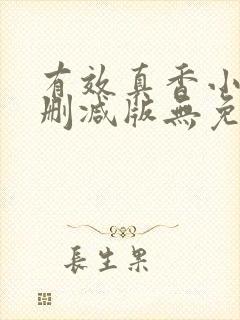 有效真香小
刪減版無免
長生果